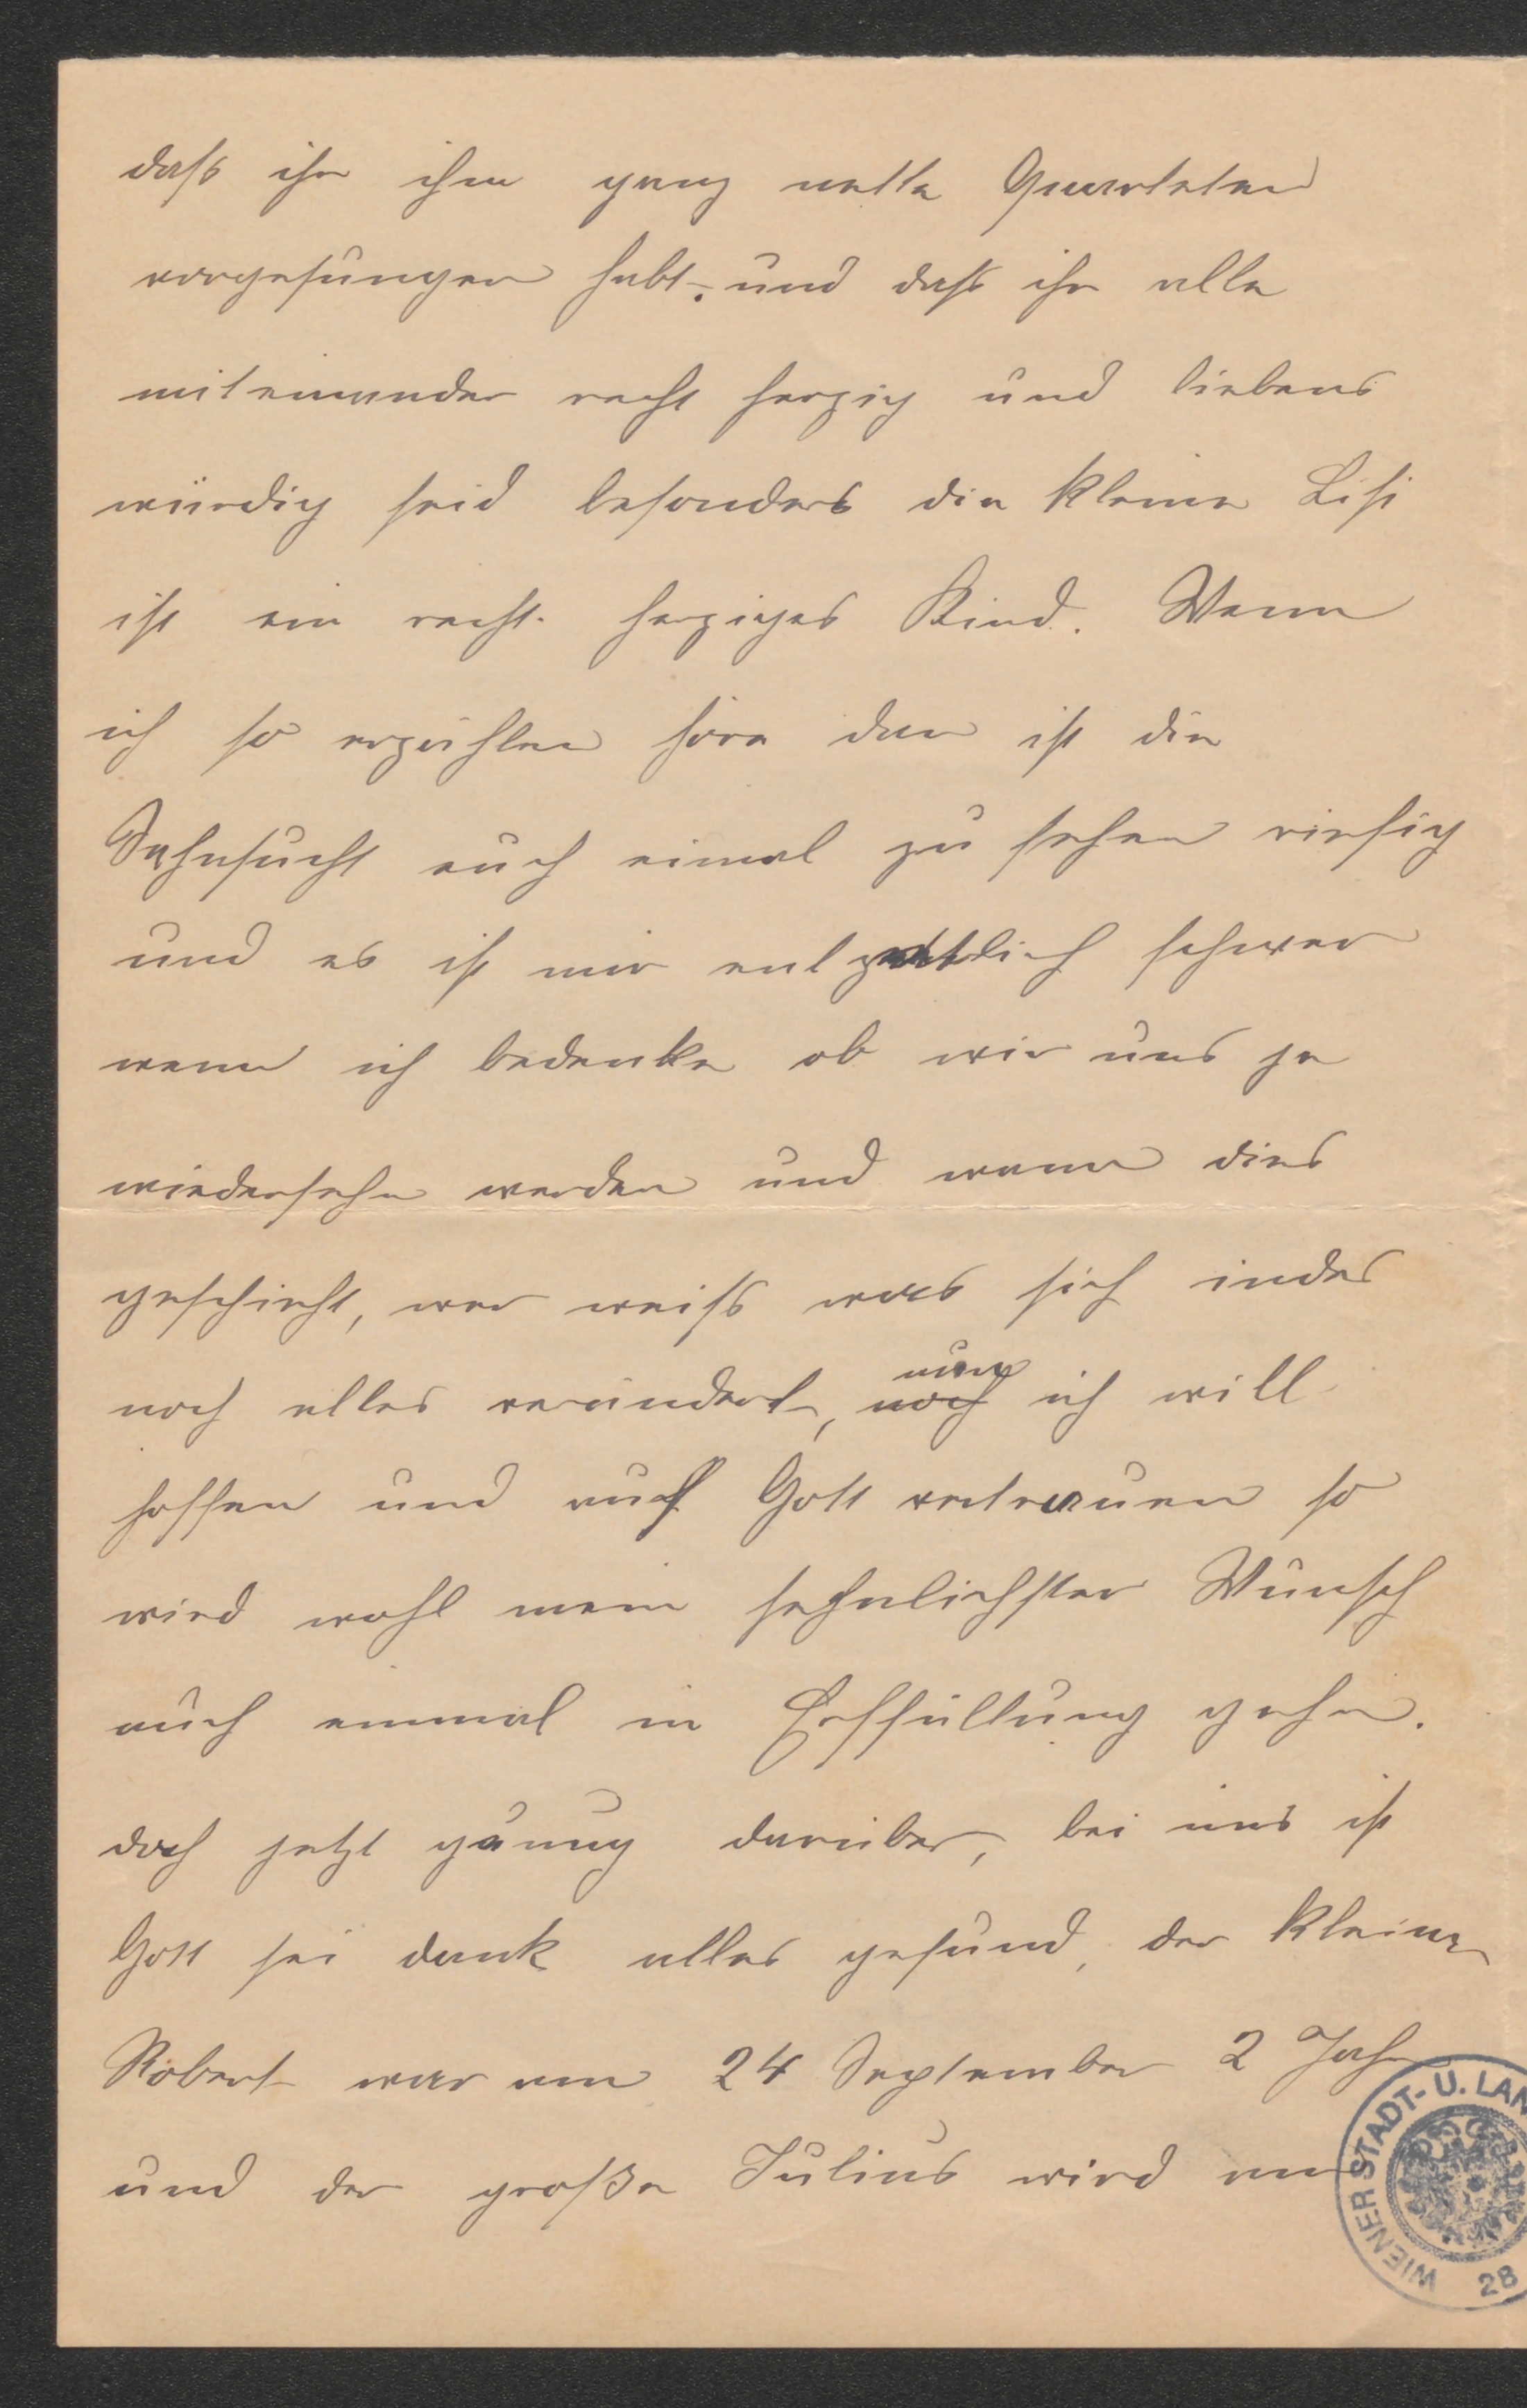 dass ihr ihm ganz nette Quarteten
vorgesungen habt. und dass ihr alle
miteinander recht herzig und liebens
würdig seid besonders die kleine Lisi
ist ein recht herziges Kind. Wenn
ich so erzählen höre dan ist die
Sehnsucht euch eimal zu sehen riesig
und es ist mir schwer
wenn ich bedenke ob wir uns je
wiedersehn werden und wann dies
geschieht, wer weiss was sich indes
noch alles verändert, nun
noch ich will
hoffen und auf Gott vertrauen so
wird wohl mein sehnlichster Wunsch
auch einmal in Erffüllung gehn.
doch jetzt genug darüber, bei uns ist
Gott sei dank alles gesund, der kleine
Robert war am 24 September 2 Jahr
und der große Julius wird am
WIENER STADT- U. LAN
28